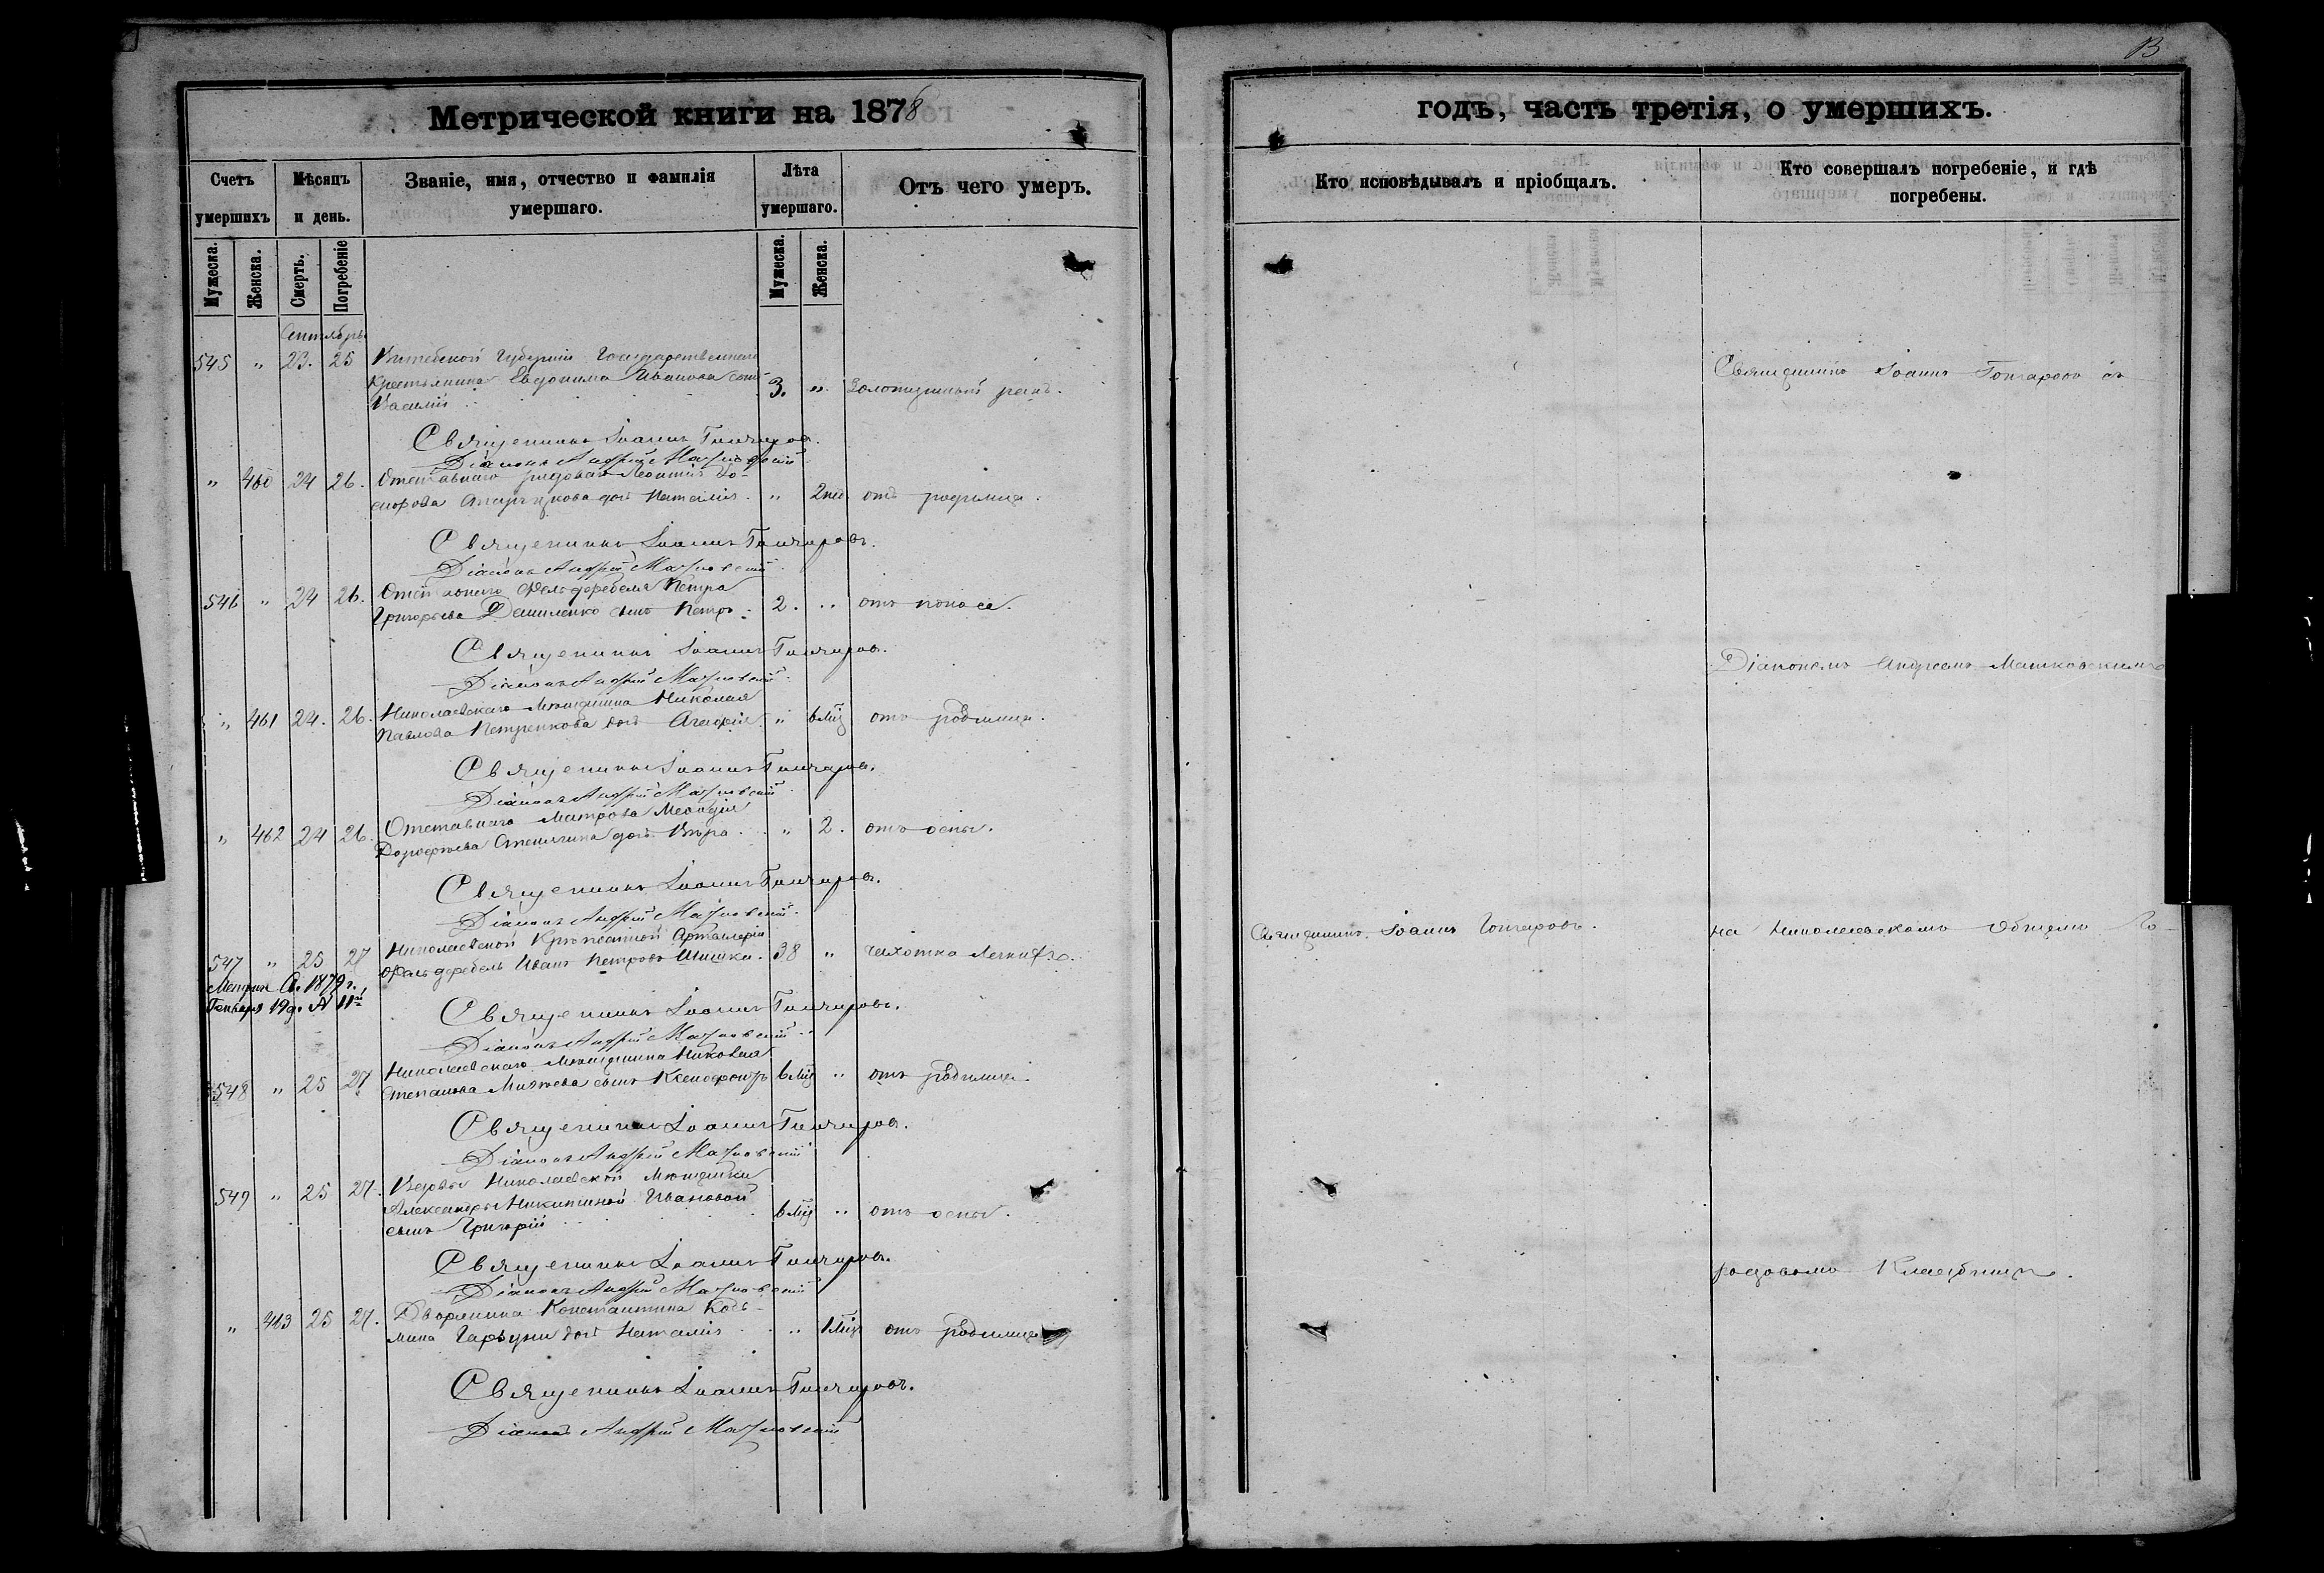 В
Метрической книги на 1878
годъ, часть третія, о умершихъ.
Счетъ умершихъ
Мѣсяцъ и день.
Званіе, имя, отчество и фамилія умершаго.
Лѣта умершаго.
Отъ чего умеръ.
Кто исповѣдывалъ и пріобщалъ.
Кто совершалъ погребеніе, и гдѣ погребены.
Мужеска.
Женска.
Смерть.
Погребеніе
Мужеска.
Женска.
Сентябрь
545 " 23. 25 Витебской Губерніи Государственнаго
Крестьянина Евдокима Иванова сынъ 3. " Золотушный
Василій
Священникъ Іоаннъ Гончаровъ.
Діаконъ Андрей Машковскій
" 460 24 26. Отставнаго рядоваго Леонтія
дочь Наталія " 2 отъ родимца.
Священникъ Іоаннъ Гончаровъ.
Діаконъ Андрей Машковскій
546 " 24 26. Отставнаго Фельдфебеля Петра
Григорьева Даниленко сынъ Петръ 2. " отъ поноса.
Священникъ Іоаннъ Гончаровъ.
Діаконъ Андрей Машковскій
" 461 24. 26. Николаевскаго Мѣщанина Николая
Павлова Петренкова дочь Агафія " 6 мц отъ родимца.
Священникъ Іоаннъ Гончаровъ.
Діаконъ Андрей Машковскій
" 462 24 26. Отставнаго Матроса
Дорофѣева дочь Вѣра " 2. отъ оспы.
Священникъ Іоаннъ Гончаровъ.
Діаконъ Андрей Машковскій
547 " 25 27 Николаевской Крѣпостной Артиллеріи
Фельдфебель Иванъ Петровъ Шишка. 38 " чахотка легкихъ.
1879 г.
Генваря 19 д. № 11
Священникъ Іоаннъ Гончаровъ.
Діаконъ Андрей Машковскій
548 " 25 27 Николаевскаго Мѣщанина
Степанова сынъ Ксенофонтъ 6 мц " отъ родимца.
Священникъ Іоаннъ Гончаровъ.
Діаконъ Андрей Машковскій
549 " 25 27. Вдовы Николаевской Мѣщанки
Александры Никитиной Ивановой
сынъ Григорій 6 мц " отъ оспы.
Священникъ Іоаннъ Гончаровъ.
Діаконъ Андрей Машковскій
" 463 25 27. Дворянина Константина
дочь Наталія " 1 мц отъ родимца
Священникъ Іоаннъ Гончаровъ.
Діаконъ Андрей Машковскій
Священникъ Іоаннъ Гончаровъ.
Священникъ Іоаннъ Гончаровъ съ
Діакономъ Андреемъ Машковскимъ
на Николаевскомъ Общемъ Го-
родовомъ Кладбищѣ.